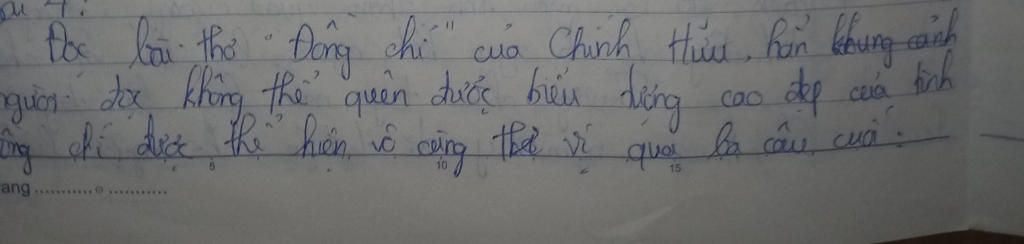 Câu 4:
Đọc bài thơ "Đồng chí" của Chính Hữu, hẳn khung cảnh
người đọc không thể quên được biểu tượng cao đẹp của tình
đồng chí được thể hiện vô cùng thú vị qua ba câu cuối.
5 10 15
ang ............ o ............